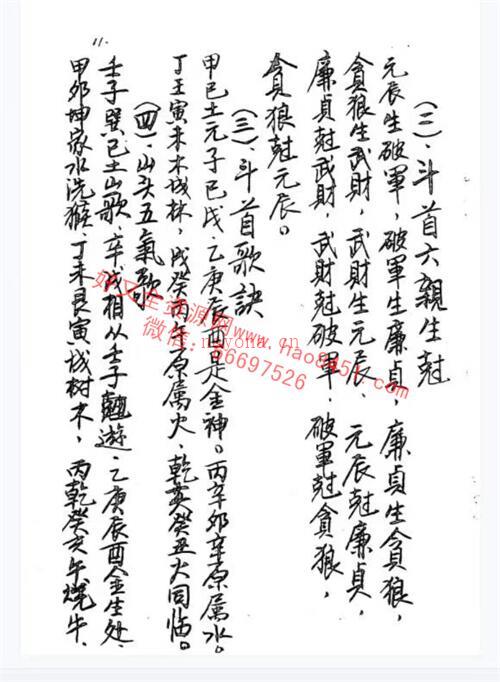 11.
(二)、斗首六親生尅
元辰生破軍，破軍生廉貞，廉貞生貪狼，
貪狼生武財，武財生元辰、元辰尅廉貞，
廉貞尅武財，武財尅破軍，破軍尅貪狼，
貪狼尅元辰。
(三)、斗首歌訣
甲巳土元子巳戌、乙庚辰酉是金神。丙辛卯辛原属水。
丁壬寅未木城林，戌癸丙午原属火，乾亥癸丑火同临。
(四)、山头五氣歌
壬子巽巳土山歌，辛戌相从壬子遊、乙庚辰酉金生处、
甲卯坤家水洗猴、丁未艮寅城树木，丙乾癸亥午燒牛、
好又全资源网www.hao8451.com
微信:66697526
nayona.cn